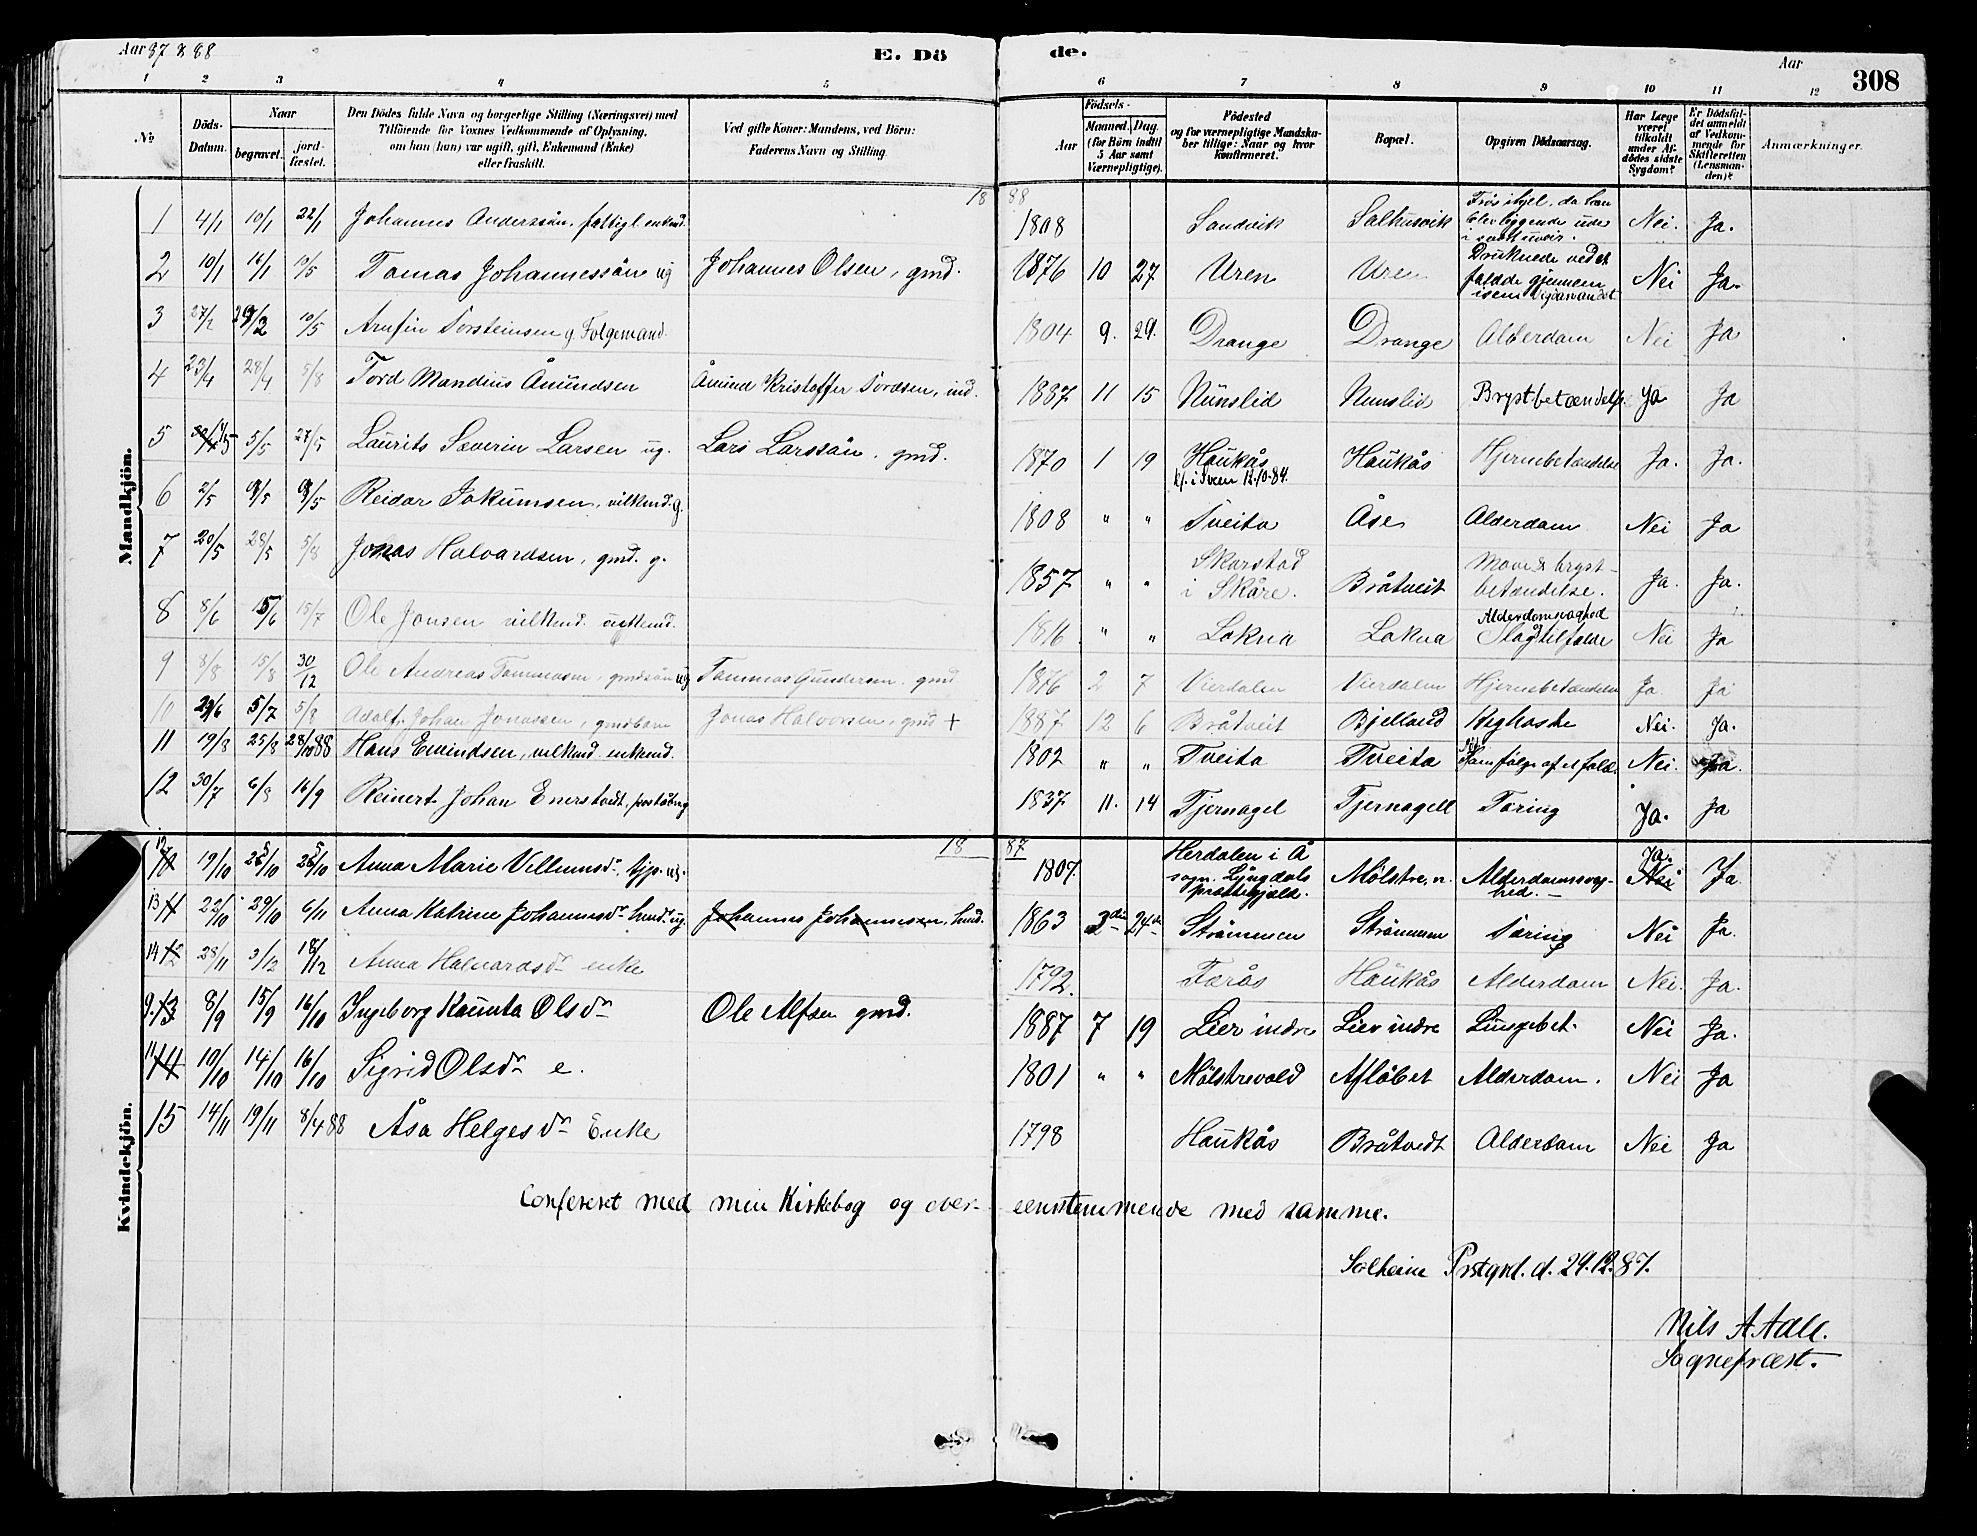 Aar 87 & 88
E. Dö de.
Aar
308
1 2 3 4 5 6 7 8 9 10 11 12
No
Döds-Datum.
Naar
begravet.
jord-fæstet.
Den Dödes fulde Navn og borgerlige Stilling (Næringsvei) med
Tilföiende for Voxnes Vedkommende af Oplysning,
om han (hun) var ugift, gift, Enkemand (Enke)
eller fraskilt.
Ved gifte Koner: Mandens, ved Börn:
Faderens Navn og Stilling
Födsels-
Aar
Maaned. Dag.
(for Börn indtil
5 Aar samt
Værnepligtige).
Födested
og for værnepligtige Mandska-
ber tillige: Naar og hvor
konfirmeret.
Bopæl.
Opgiven Dödsaarsag.
Har Læge
været
tilkaldt
under Af-
dödes sidste
Sygdom?
Er Dödsfal-
det anmeldt
af Vedkom-
mende for
Skifteretten
(Lensman-
den)?
Anmærkninger.
Mandkjön.
18 88
1 4/1 10/1 22/1 Johannes Anderssön, fattigl. enkmd. 1808 Sandvik Salhusvik Frös ihjel, da han blev liggende ude i Nei. Ja.
2 10/1 16/1 10/5 Tomas Johannessön ug Johannes Olsen, gmd. 1876 10 27 Uren Uren Druknede ved at falde gjennem isen Nei Ja.
3 27/2 29/2 10/5 Arnfin Torsteinsen g. Folgemand. 1804 9. 29. Drange Drange Alderdom Nei Ja
4 23/4 28/4 5/8 Tord Mandius Åmundsen Åmund Kristoffer Tordsen, ind. 1887 11 15 Nunslid Nunslid Brystbetændelse Ja Ja
5 1/5 5/5 27/5 Laurits Severin Larsen ug. Lars Larssön, gmd. 1870 1 19 Haukås Haukås Hjernebetændelse Ja. Ja.
kf. i Sveen 12.10.84.
6 2/5 9/5 9/5 Reidar Jokumsen, vilkmd. g. 1808 " " Tveita Åse Alderdom Nei Ja
7 20/5 28/5 5/8 Jonas Halvardsen, gmd. g. 1857 " " Skarstad i Skåre. Bråtveit Mave & bryst-betændelse. Ja. Ja.
8 8/6 15/6 15/7 Ole Jonsen vilkmd. enkemd. 1816 " " Lokna Lokna Alderdomssvaghed Slagtilfælde Nei Ja
9 8/8 15/8 30/12 Ole Andreas Tommasen, gmdsön ug Tommas Gundersen gmd 1876 2 7 Vierdalen Vierdalen Hjernebetændelse Ja. Ja
10 29/6 5/7 5/8 Adolf Johan Jonassen, gmdbarn Jonas Halvorsen, gmd + 1887 12 6 Bråtveit Bjelland Kighoste Nei. Ja.
11 19/8 25/8 28/10 88 Hans Emindsen, vilkmd. enkemd. 1802 " " Tveita Tveita Som fölge af et fald. Nei. Ja.
12 30/7 6/8 16/9 Reinert Johan Enerstvedt, poståbn. g 1837 11. 14 Tjernagel Tjernagell Tæring Ja. Ja
Kvindekjön.
18 87
12 19/10 25/10 25/10 Anna Marie Villumsdr. tjp. ug. 1807 Herdalen i Å sogn. Lyngdals præstegjæld. Mölstre, n. Alderdomssvaghed. Ja. Nei Ja
13 22/10 29/10 6/11 Anna Katrine Johannesdr. husd. ug. Johannes Johannesen, husd. 1863 3die 24de Strömmen Strömmen Tæring Nei Ja.
14 28/11 3/12 18/12 Anna Halvardsdr. enke 1792. Færås Haukås Alderdom Nei. Ja.
9. 13 8/9 15/9 16/10 Ingeborg Kaunta Olsdr Ole Alfsen gmd. 1887 7 19 Lier indre Lier indre Lungebet. Nei Ja.
11 14 10/10 14/10 16/10 Sigrid Olsdr e. 1801 " " Mölstrevold Aflöbet Alderdom. Nei Ja
15 14/11 19/11 8/4 88 Åsa Helgesdr Enke 1798 Haukås Bråtvedt Alderdom Nei Ja
Confereret med min Kirkebog og over-eensstemmende med samme.
Solheim Prstgrd. d. 29.12.87.
Nils A. Aall.
Sognepræst.